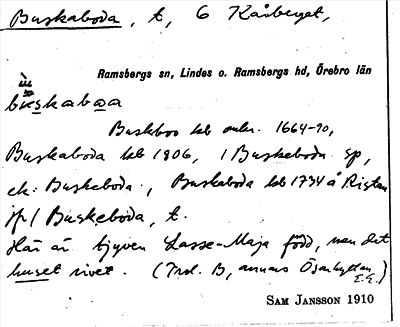 Buskaboda, t, 6 Kårberget,
Ramsbergs sn, Lindes o. Ramsbergs hd, Örebro län
buskaboa
Buskboo kb omkr. 1664-90,
Buskaboda kb 1806, 1 Buskeboda sp,
ek: Buskeboda, Buskaboda kb 1734 å
jfr 1 Buskeboda, t.
Här är tjyven Lasse-Maja född, men det
huset rivet. (Trol. B, annars Ösarhyttan
E.E.)
SAM JANSSON 1910